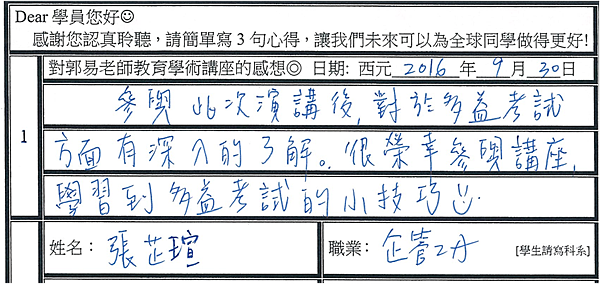 Dear 學員您好☺
感謝您認真聆聽，請簡單寫 3 句心得，讓我們未來可以為全球同學做得更好!
對郭易老師教育學術講座的感想◎ 日期: 西元 2016 年 9 月 30 日
1
參與此次演講後,對於多益考試
方面有深入的了解。很榮幸參與講座,
學習到多益考試的小技巧☺.
姓名： 張芷瑄
職業： 企管二A [學生請寫科系]